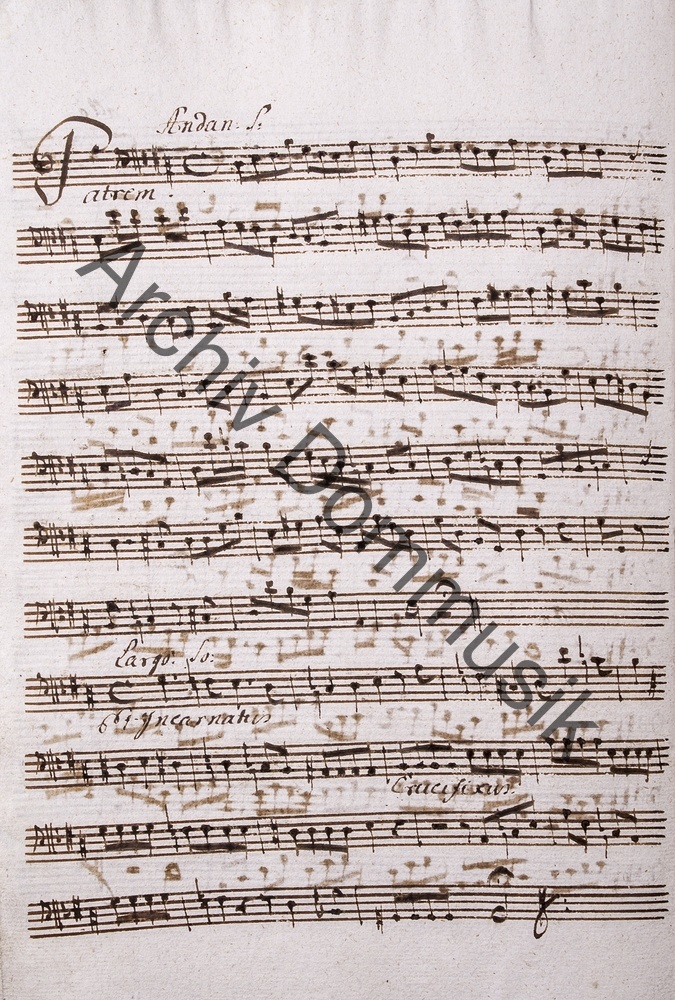 Andan: S:
Patrem
Largo. So:
Et Incarnatus
Crucifixus.
Archiv Dommusik